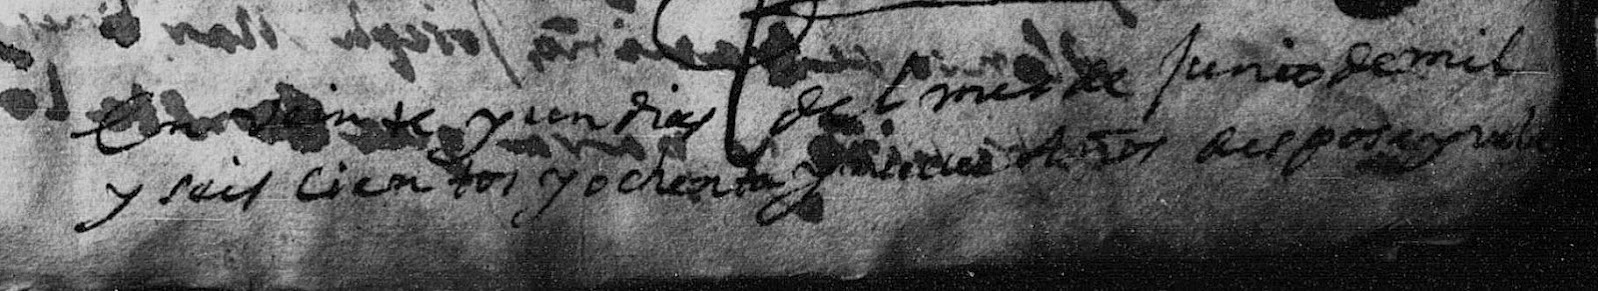 En Veinte y un dias del mes de Junio de mil
y seis cientos y ochenta y años despose y vele